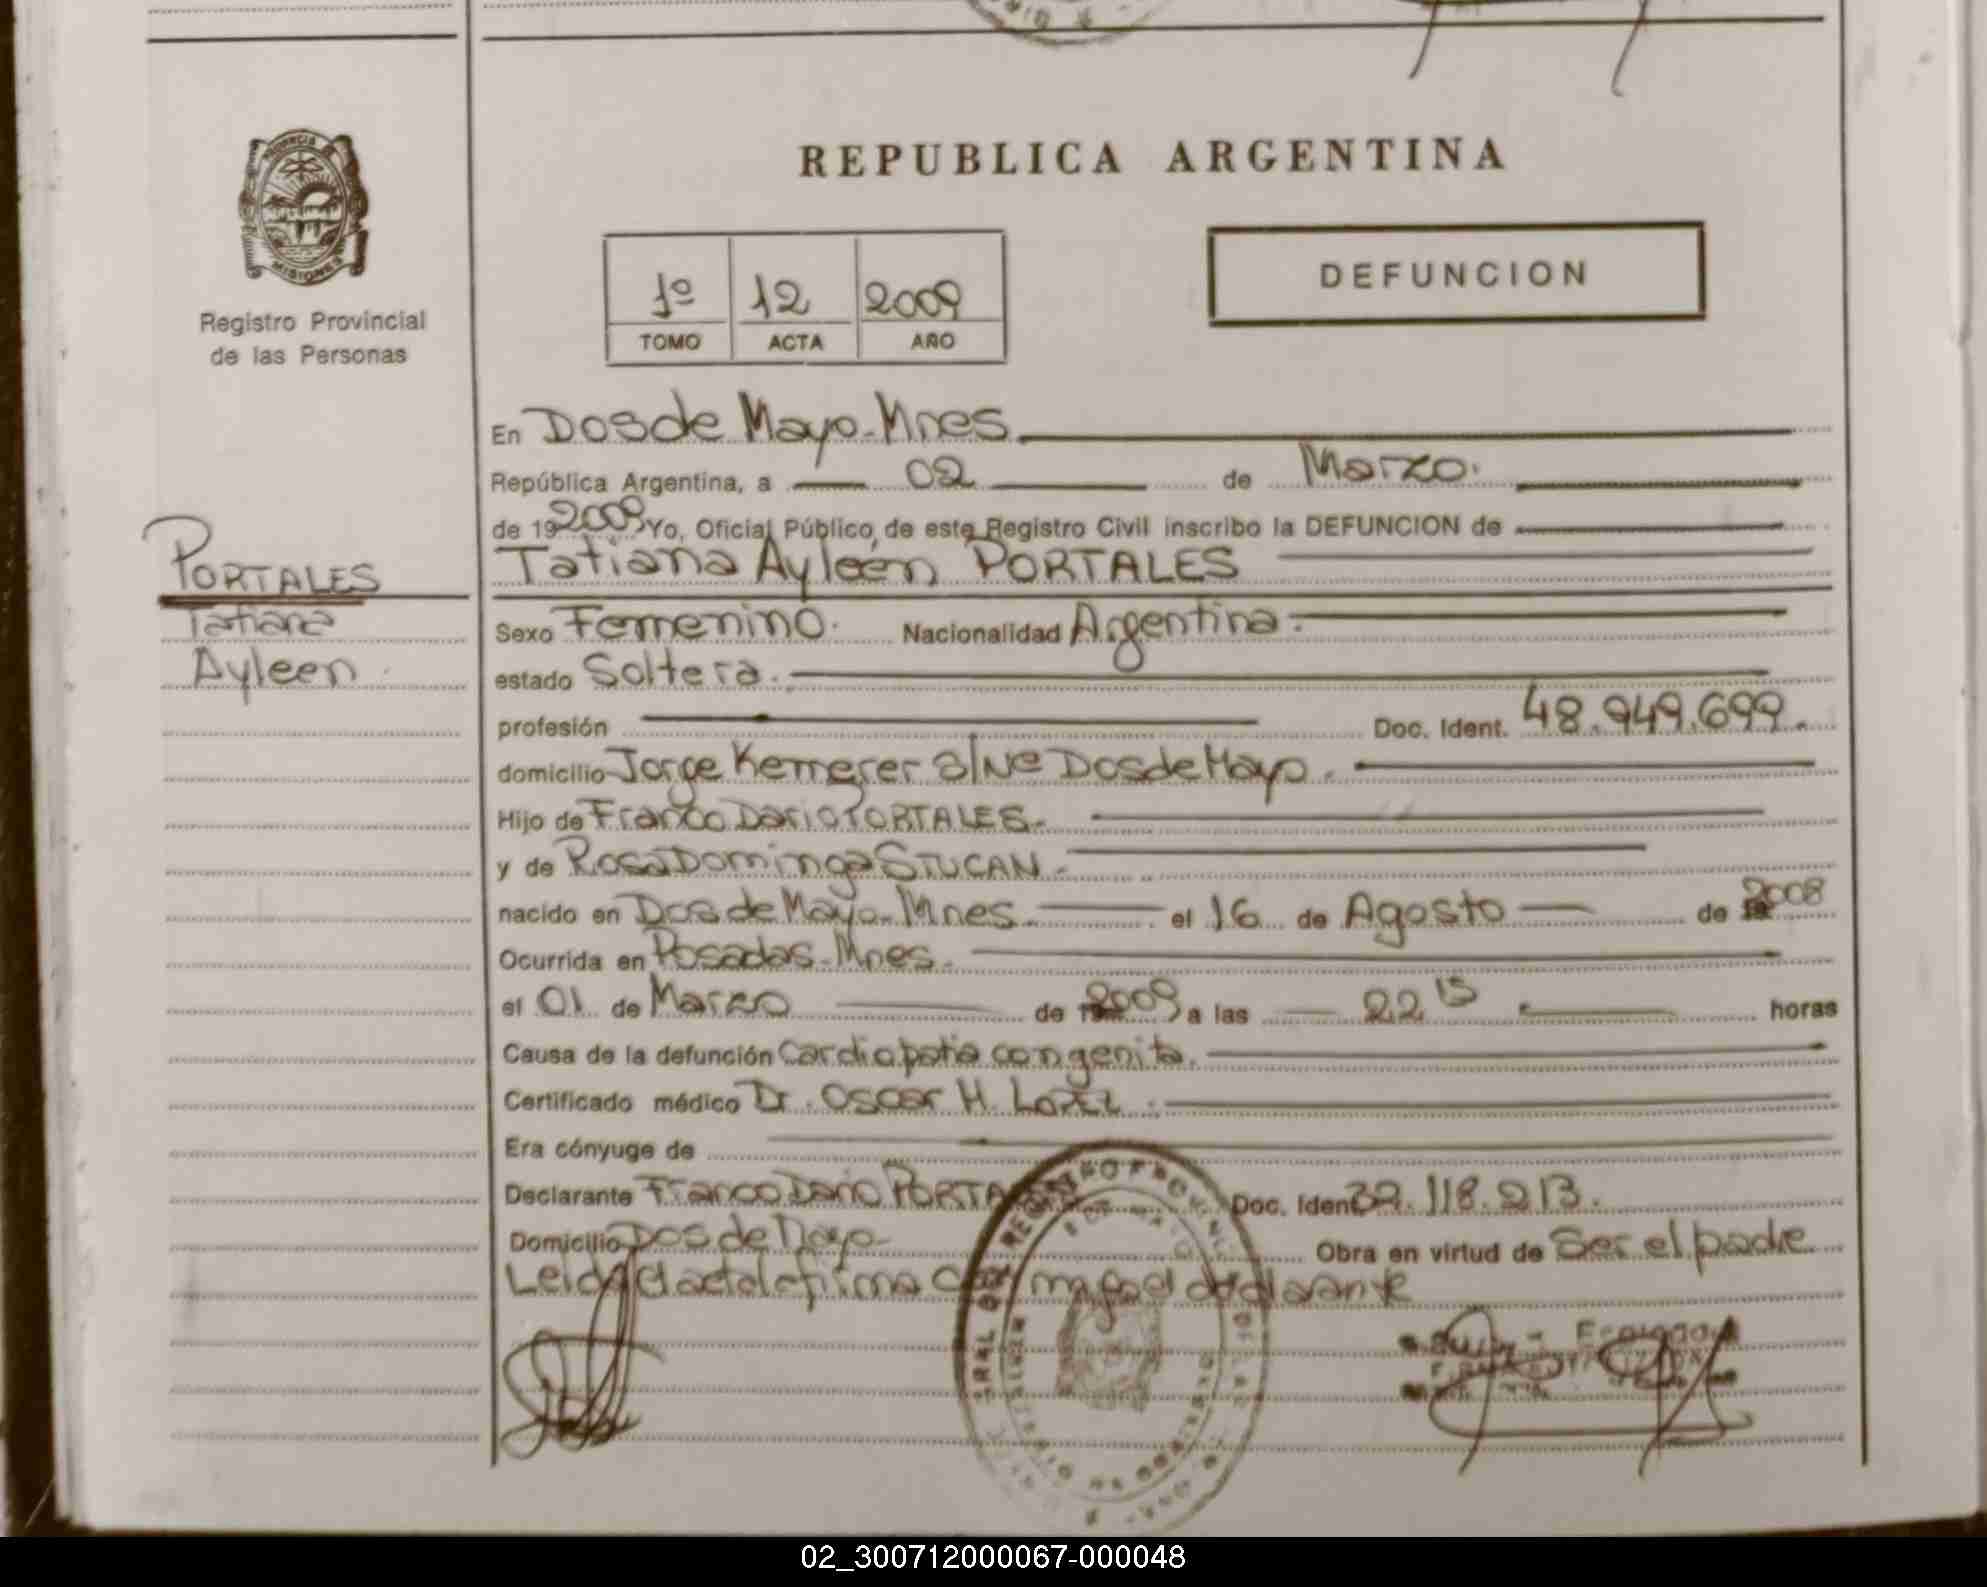 REPUBLICA ARGENTINA
PROVINCIA DE
MISIONES
Registro Provincial
de las Personas
1º 12 2009
TOMO ACTA AÑO
DEFUNCION
PORTALES
Tatiana
Ayleen
En Dos de Mayo-Mnes
República Argentina, a 02 de Marzo.
de 19 2009 Yo, Oficial Público de este Registro Civil inscribo la DEFUNCION de
Tatiana Ayleén PORTALES
Sexo Femenino. Nacionalidad Argentina.
estado Soltera.
profesión Doc. Ident. 48.949.699.
domicilio Jorge Kemerer s/Nº Dos de Mayo.
Hijo de Franco Dario PORTALES.
y de Rosa Dominga STUCAN.
nacido en Dos de Mayo-Mnes. el 16 de Agosto de 2008
Ocurrida en Posadas-Mnes.
el 01 de Marzo de 2009 a las 22 15 horas
Causa de la defunción Cardiopatia congenita.
Certificado médico Dr. Oscar H. LOPEZ.
Era cónyuge de
Declarante Franco Dario PORTA Doc. Ident. 32.118.213.
Domicilio Dos de Mayo- Obra en virtud de Ser el padre
Leida el acta la firma declarante
02_300712000067-000048